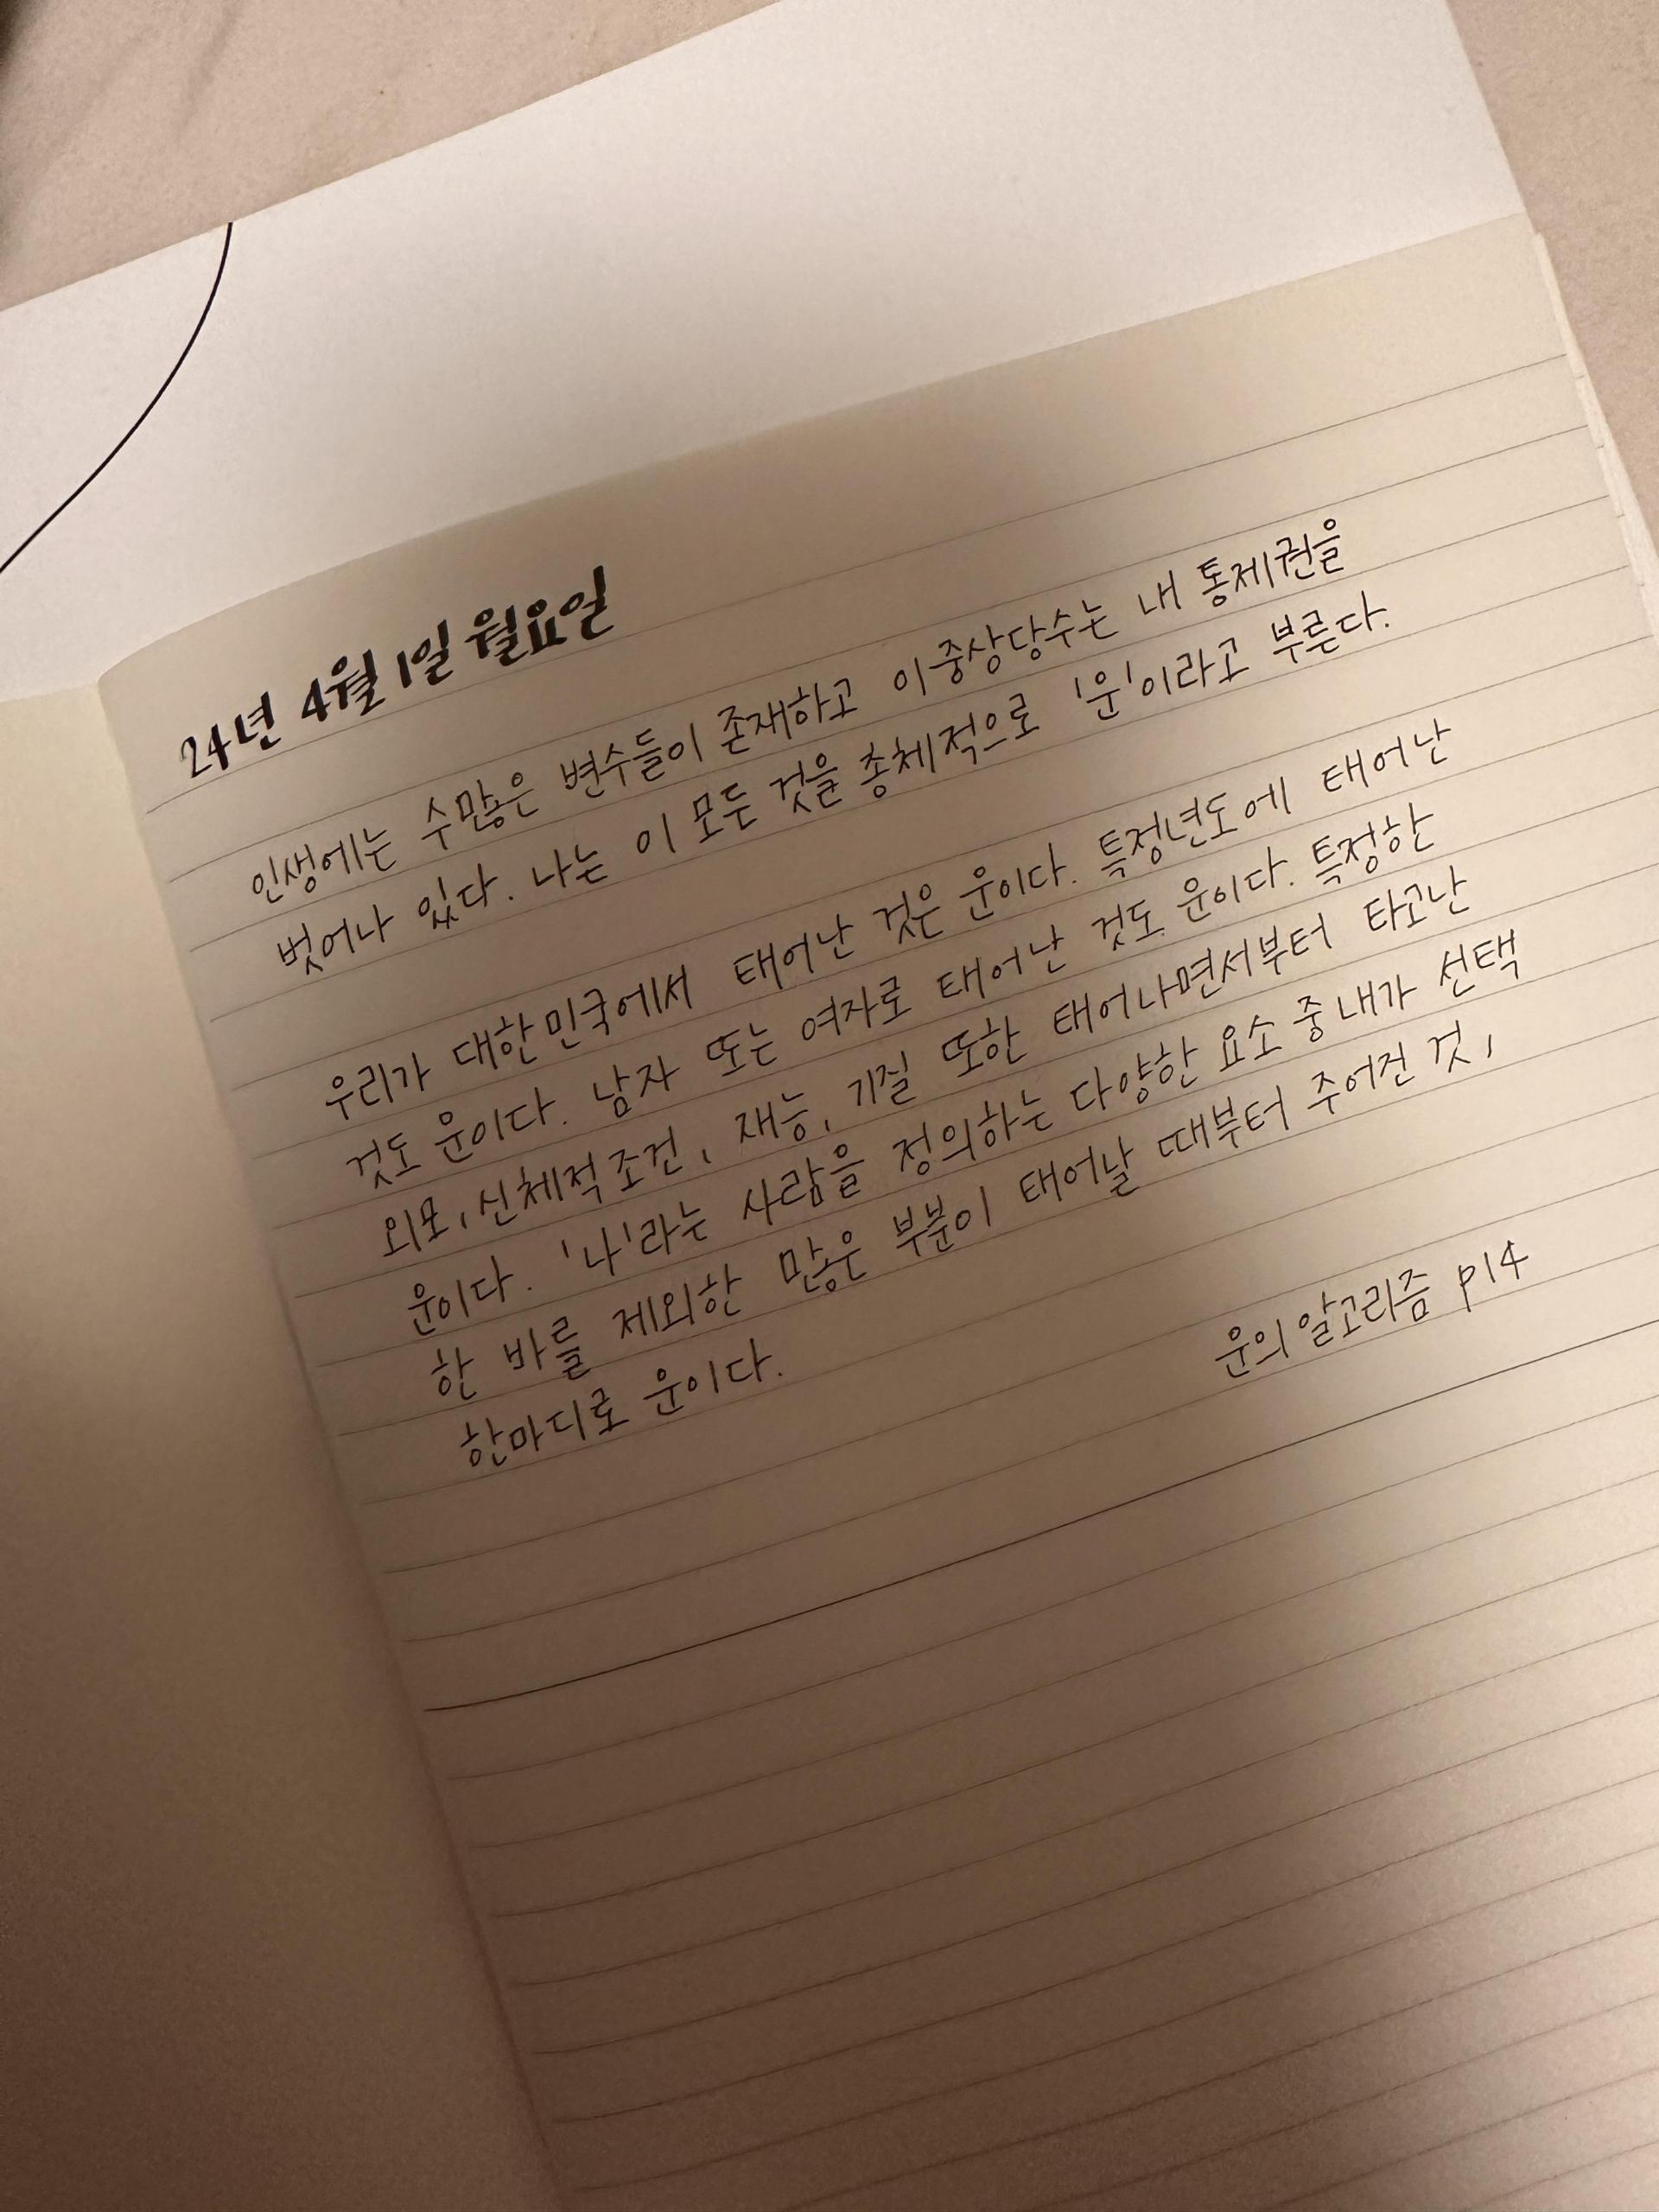 24년 4월 1일 월요일
인생에는 수많은 변수들이 존재하고 이중상당수는 내 통제권을
벗어나 있다. 나는 이 모든 것을 총체적으로 '운'이라고 부른다.
우리가 대한민국에서 태어난 것은 운이다. 특정년도에 태어난
것도 운이다. 남자 또는 여자로 태어난 것도 운이다. 특정한
외모, 신체적 조건, 재능, 기질 또한 태어나면서부터 타고난
운이다. '나'라는 사람을 정의하는 다양한 요소 중 내가 선택
한 바를 제외한 많은 부분이 태어날 때부터 주어진 것,
한마디로 운이다.
운의 알고리즘 p14